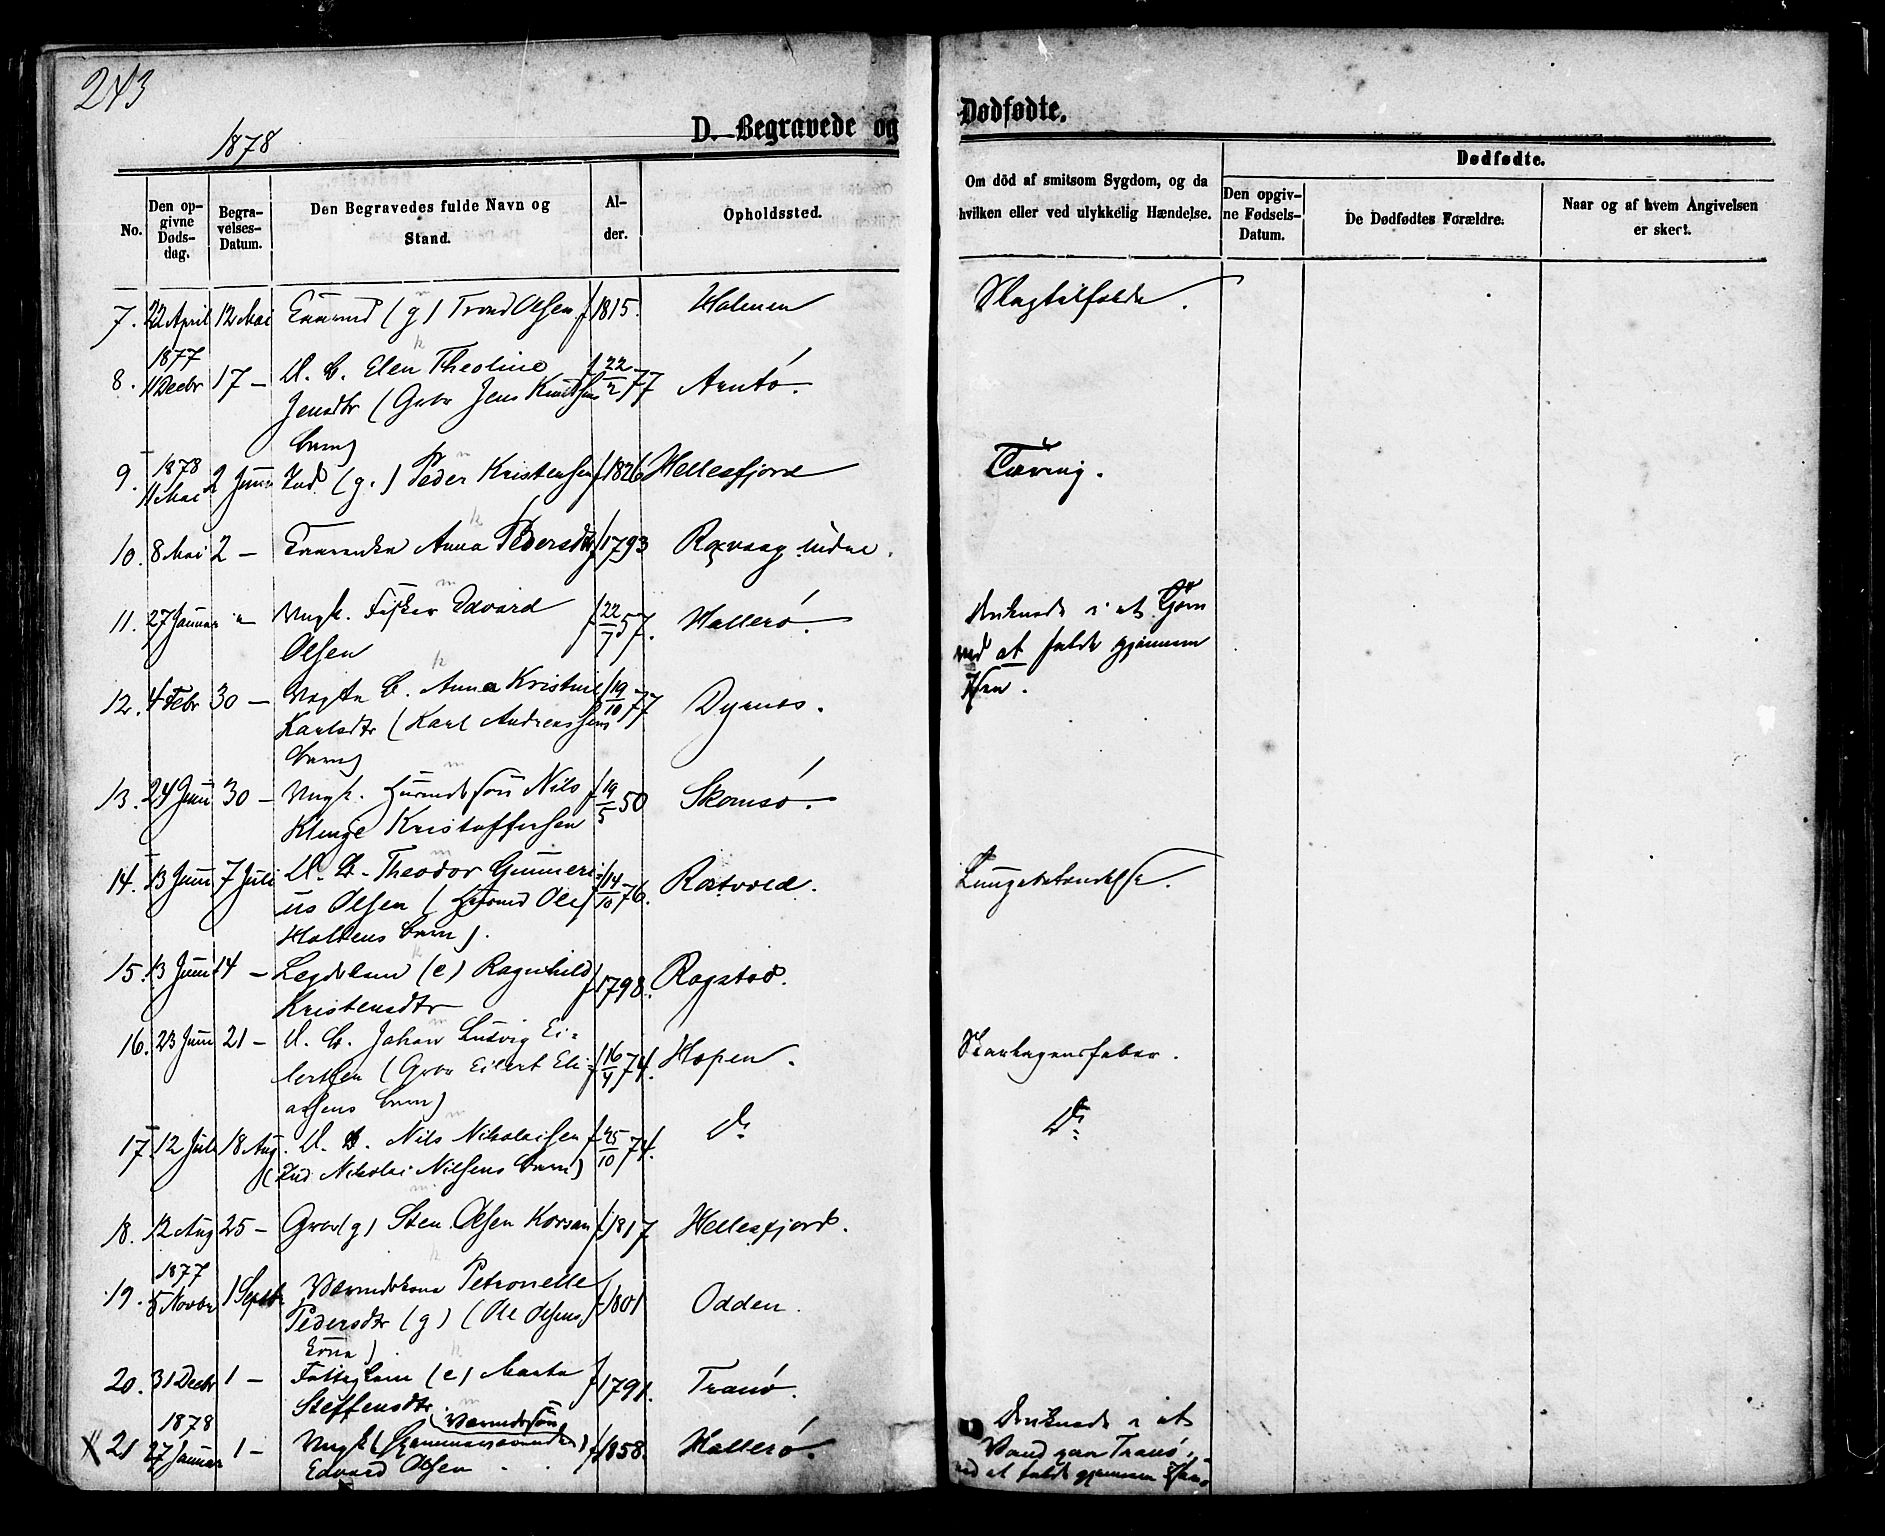 243
1878
D. Begravede og Dødfødte.
No.
Den opgivne Dødsdag.
Begravelses-Datum.
Den Begravedes fulde Navn og Stand.
Alder.
Opholdssted.
Om död af smitsom Sygdom, og da hvilken eller ved ulykkelig Hændelse.
Dødfødte.
Den opgivne Fødsels-Datum.
De Dødfødtes Forældre.
Naar og af hvem Angivelsen er skeet.
7. 22 April 12 Mai (g) Trond Olsen f 1815. Holmen Slagtilfælde.
1877
8. 11 Decbr 17 – U. B. Elen Theoline f 22/2 77 Arntö.
Jensdtr (Gbr Jens Knudsens
barn)
1878
9. 11 Mai 2 Juni Ind. (g.) Peder Kristensen f 1826 Hellesfjord Tæring.
10. 8 Mai 2 – Anna Pedersdtr f 1793 Røsvaag indre.
11. 27 Januar " – Ungk. Fisker Edvard f 22/7 57. Hallerö. Druknede i et Tjern
Olsen ved at falde gjennem
Isen.
12. 4 Febr 30 – B. Anna Kristine f 19/10 77 Dyrnes.
Karlsdtr (Karl Andreassens
barn)
13. 24 Juni 30 – Ungk. Nils f 19/5 50 Skomsö.
Klinge Kristoffersen
14. 13 Juni 7 Juli U. B. Theodor Gunneri- f 14/10 76. Røtvold. Lungebetændelse.
us Olsen ( Ole
Holtens barn).
15. 13 Juni 14 – Legdslem (e) Ragnhild f 1798. Rogstad.
Kristensdtr
16. 23 Juni 21 – U. B. Johan Ludvig Ei- f 16/4 74. Hopen. Skarlagensfeber.
lertsen (Gbr Eilert Eli-
assens barn)
17. 12 Juli 18 Aug. U. B. Nils Nikolaisen f 25/10 74. Do Do
(Ind. Nikolai Nilsens barn)
18. 12 Aug 25 – Gbr (g) Sten Olsen Korsan f 1817 Hellesfjord.
1877
19. 5 Novbr 1 Septb. Petronelle f 1801 Odden.
Pedersdtr (g) (Ole Olsens
kone)
20. 31 Decbr 1 – Fattiglem (e) Marta f 1791. Tranö.
Steffensdtr
1878
X 21 27 Januar 1 – Ungk f 1858. Hallerö. Druknede i et
Edvard Olsen Vand paa Tranö,
ved at falde gjennem Isen